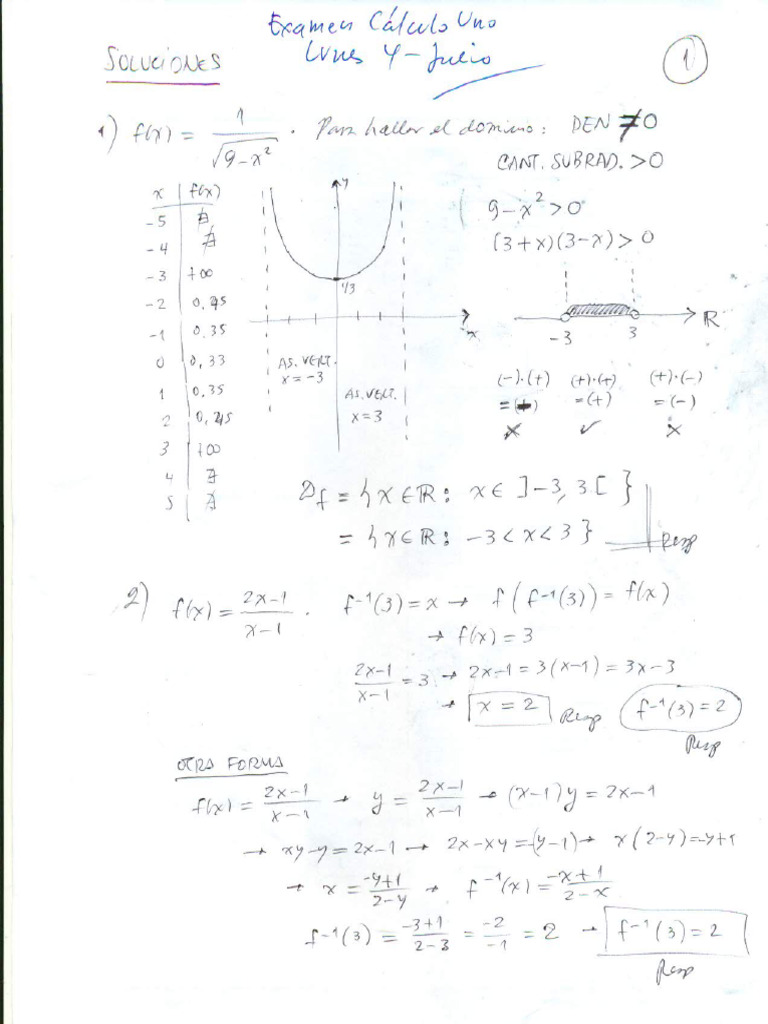 Examen Cálculo Uno
Lunes 4-Julio
SOLUCIONES
1
1) f(x) = 1/√(9-x²) . Para hallar el dominio: DEN ≠ 0
CANT. SUBRAD. > 0
x | f(x)
-5 | ∄
-4 | ∄
-3 | +∞
-2 | 0,45
-1 | 0.35
0 | 0,33
1 | 0.35
2 | 0,45
3 | +∞
4 | ∄
5 | ∄
y
1/3
x
AS. VERT.
x = -3
AS. VERT.
x = 3
9-x² > 0
(3+x)(3-x) > 0
-3 3 ℝ
(-)·(+) (+)·(+) (+)·(-)
=(-) =(+) =(-)
✗ ✓ ✗
Df = {x∈ℝ: x∈ ]-3, 3[ }
= {x∈ℝ: -3<x<3} Resp
2) f(x) = (2x-1)/(x-1) . f⁻¹(3) = x → f(f⁻¹(3)) = f(x)
→ f(x) = 3
(2x-1)/(x-1) = 3 → 2x-1 = 3(x-1) = 3x-3
→ x = 2 Resp f⁻¹(3) = 2
Resp
OTRA FORMA
f(x) = (2x-1)/(x-1) → y = (2x-1)/(x-1) → (x-1)y = 2x-1
→ xy-y = 2x-1 → 2x-xy = -(y-1) → x(2-y) = -y+1
→ x = (-y+1)/(2-y) → f⁻¹(x) = (-x+1)/(2-x)
f⁻¹(3) = (-3+1)/(2-3) = -2/-1 = 2 → f⁻¹(3) = 2
Resp